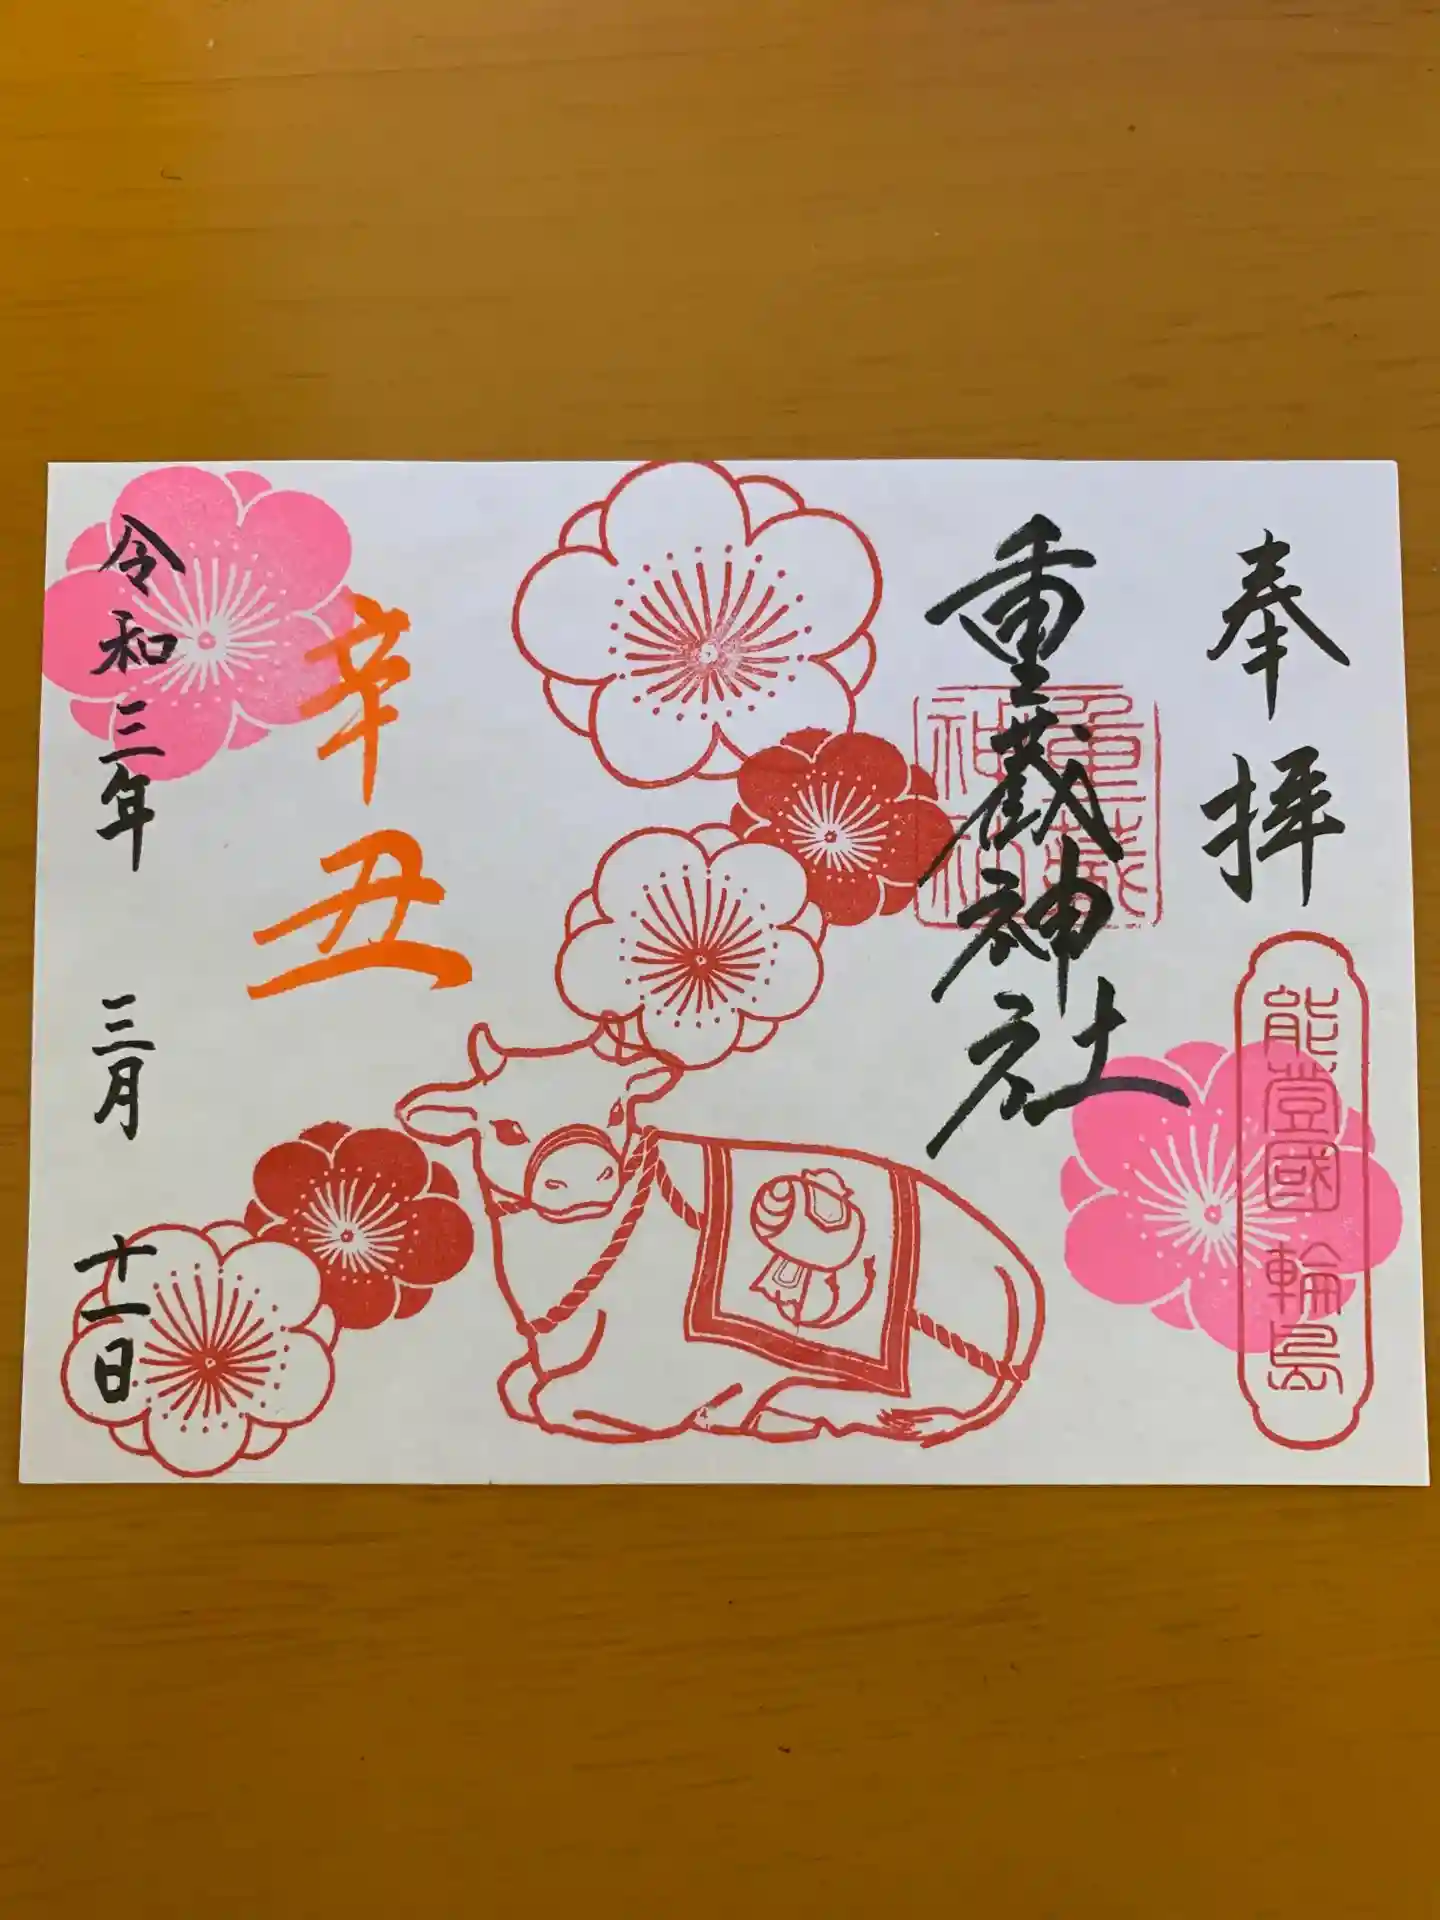 奉拝
能登國輪島
重蔵神社
重蔵神社
辛丑
令和三年 三月 十一日